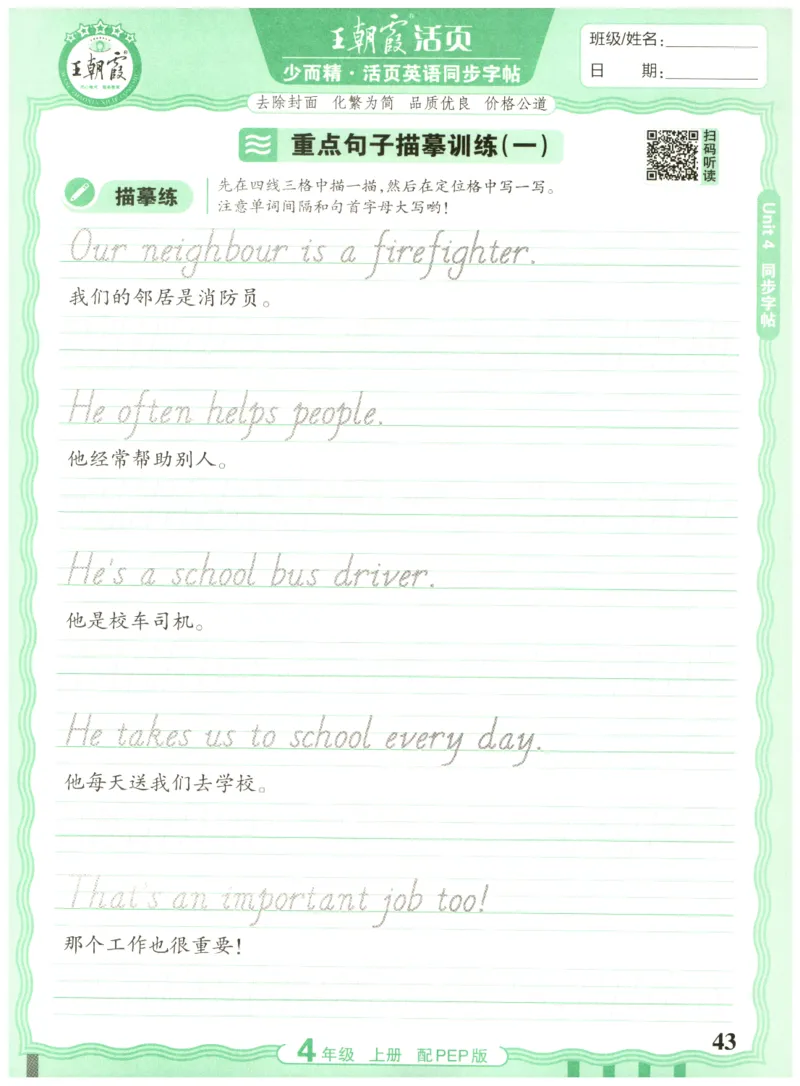 王朝霞
王朝霞®活页
少而精·活页英语同步字帖
班级/姓名:
日 期:
去除封面 化繁为简 品质优良 价格公道
重点句子描摹训练(一)
扫码听读
描摹练
先在四线三格中描一描,然后在定位格中写一写。
注意单词间隔和句首字母大写哟!
Unit 4 同步字帖
Our neighbour is a firefighter.
我们的邻居是消防员。
He often helps people.
他经常帮助别人。
He's a school bus driver.
他是校车司机。
He takes us to school every day.
他每天送我们去学校。
That's an important job too!
那个工作也很重要!
4年级 上册 配PEP版
43